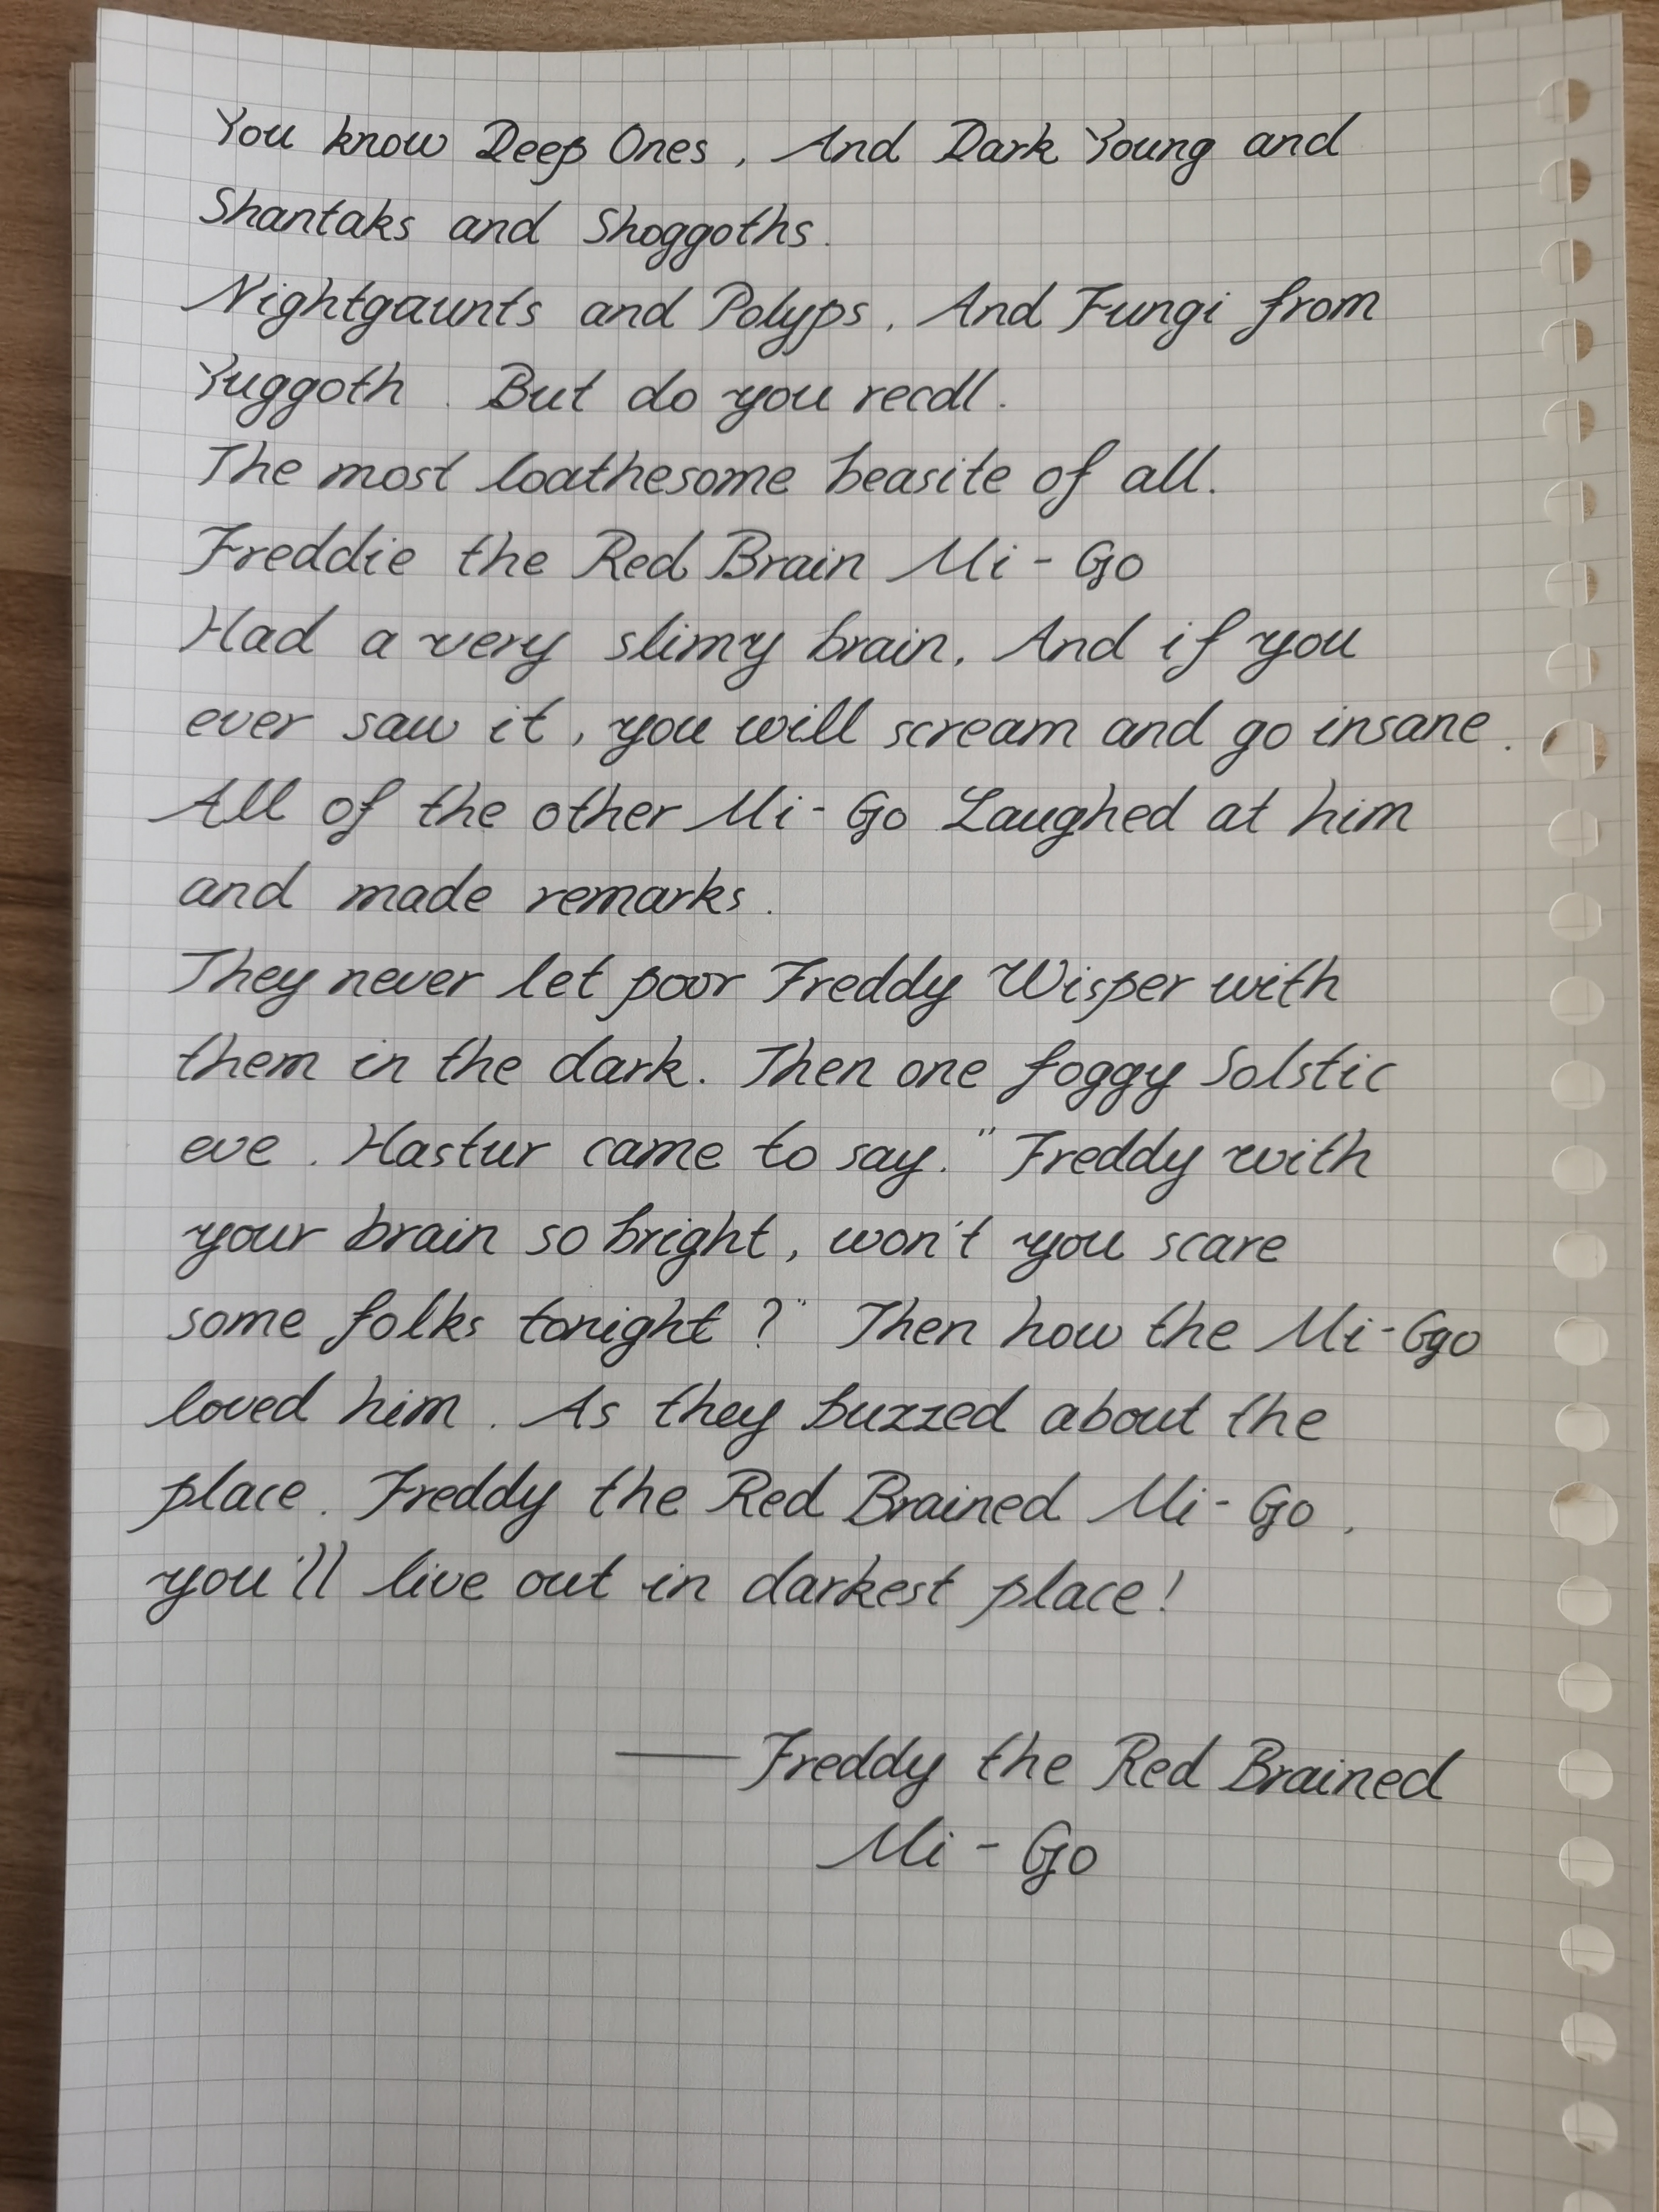 You know Deep Ones, And Dark Young and
Shantaks and Shoggoths.
Nightgaunts and Polyps, And Fungi from
Yuggoth. But do you recall.
The most loathesome beasite of all.
Freddie the Red Brain Mi-Go
Had a very slimy brain, And if you
ever saw it, you will scream and go insane.
All of the other Mi-Go Laughed at him
and made remarks.
They never let poor Freddy Wisper with
them in the dark. Then one foggy Solstic
eve. Hastur came to say. "Freddy with
your brain so bright, won't you scare
some folks tonight?" Then how the Mi-Ggo
loved him. As they buzzed about the
place. Freddy the Red Brained Mi-Go,
you'll live out in darkest place!
—Freddy the Red Brained
Mi-Go